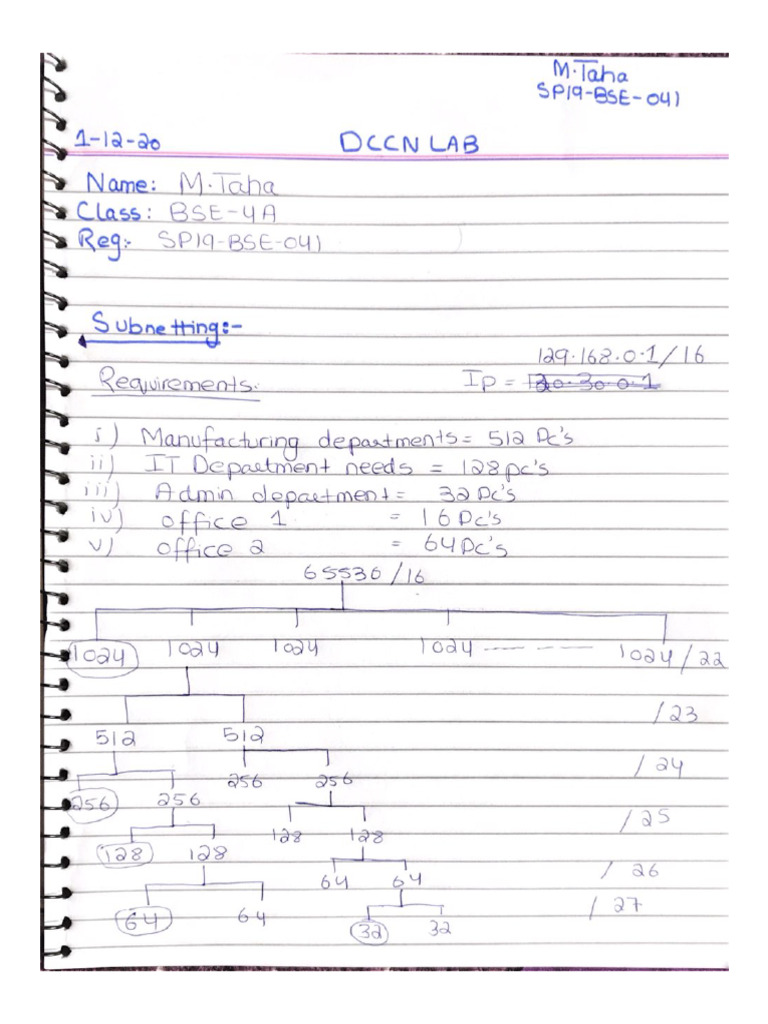 M.Taha
SP19-BSE-041
1-12-20 DCCN LAB
Name: M.Taha
Class: BSE-4A
Reg:- SP19-BSE-041
Subnetting:-
129.168.0.1/16
Requirements. Ip = 120.30.0.1
i) Manufacturing departments = 512 Pc's
ii) IT Department needs = 128 pc's
iii) Admin department = 32 Pc's
iv) office 1 = 16 Pc's
v) office 2 = 64 Pc's
65536/16
1024 1024 1024 1024 --- 1024/22
512 512 /23
256 256 256 256 /24
128 128 128 128 /25
64 64 64 64 /26
32 32 /27